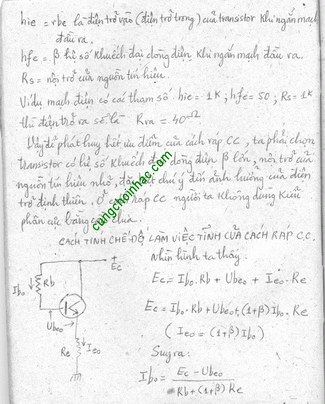 hie = rbe là điện trở vào (điện trở trong) của transistor khi ngắn mạch
đầu ra.
hfe = β hệ số khuếch đại dòng điện khi ngắn mạch đầu ra.
Rs = nội trở của nguồn tín hiệu.
Ví dụ mạch điện có các tham số hie = 1K; hfe = 50; Rs = 1K
thì điện trở ra sẽ là Rra = 40Ω
Vậy để phát huy hết ưu điểm của cách ráp CC, ta phải chọn
transistor có hệ số khuếch đại dòng điện β lớn, nội trở của
nguồn tín hiệu nhỏ, chú ý đến ảnh hưởng của điện
trở định thiên. Ở ráp CC người ta không dùng kiểu
phân cực bằng
cungchoinhac.com
CÁCH TÍNH CHẾ ĐỘ LÀM VIỆC TĨNH CỦA CÁCH RÁP C.C.
Nhìn hình ta thấy:
+
Ec
Ib0
Rb
Ube0
Re
Ie0
Ec = Ib0.Rb + Ube0 + Ie0.Re
Ec = Ib0.Rb + Ube0 + (1+β)Ib0.Re
(Ie0 = (1+β)Ib0)
Suy ra:
Ib0 = Ec - Ube0
Rb + (1+β)Re